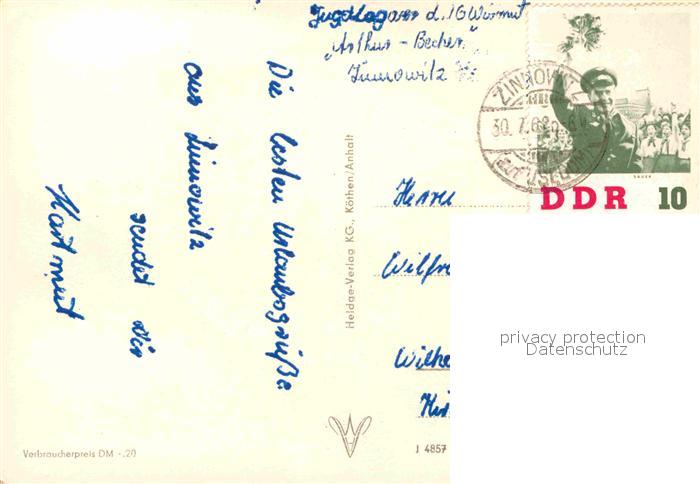 Jugdlager d. IG Wismut
"Arthur-Becker"
Zinnowitz
Die besten Urlaubsgrüße
aus Zinnowitz
sendet Dir
Hartmut
Heldge-Verlag KG., Köthen/Anhalt
ZINNOWITZ
30. 7. 62
USEDOM
SAUER
DDR 10
Herrn
Wilfr
Wilhe
privacy protection
Datenschutz
Verbraucherpreis DM -.20
J 4857